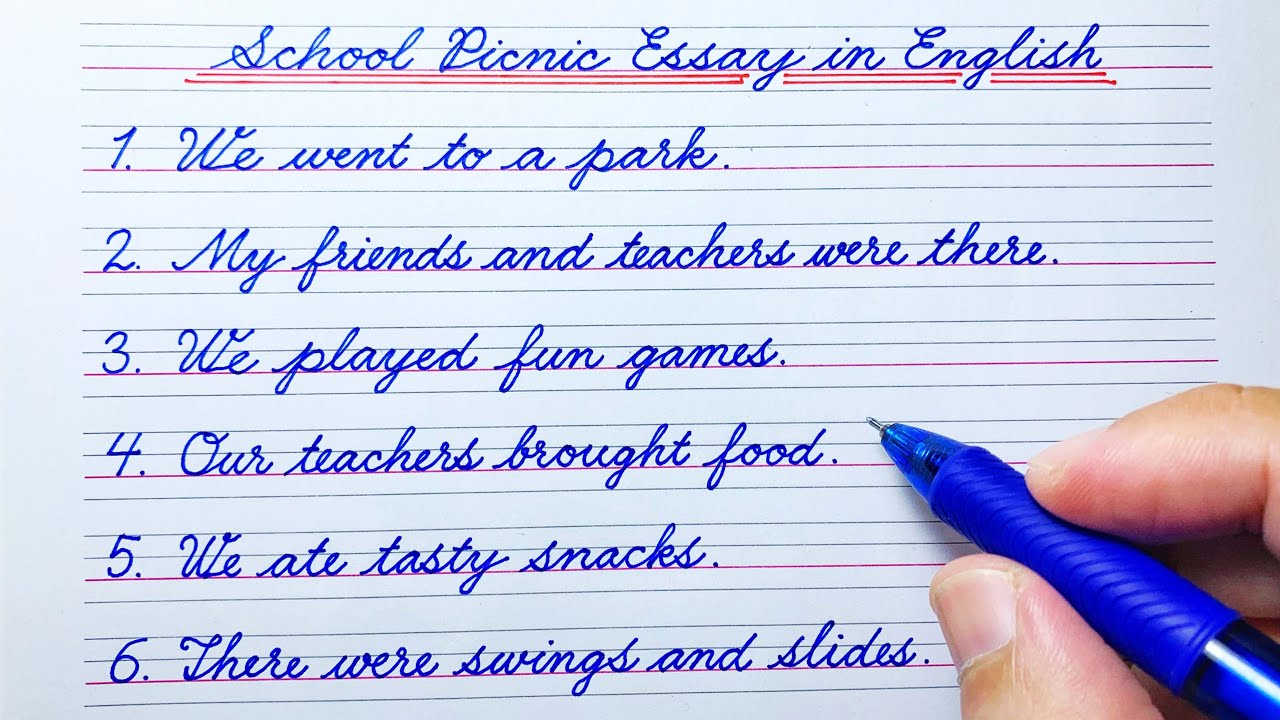 School Picnic Essay in English
1. We went to a park.
2. My friends and teachers were there.
3. We played fun games.
4. Our teachers brought food.
5. We ate tasty snacks.
6. There were swings and slides.